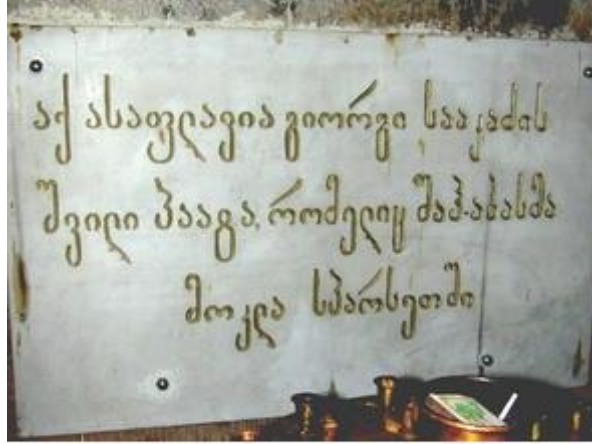 აქ ასაფლავია გიორგი სააკაძის
შვილი პაატა, რომელიც შაჰ-აბასმა
მოკლა სპარსეთში